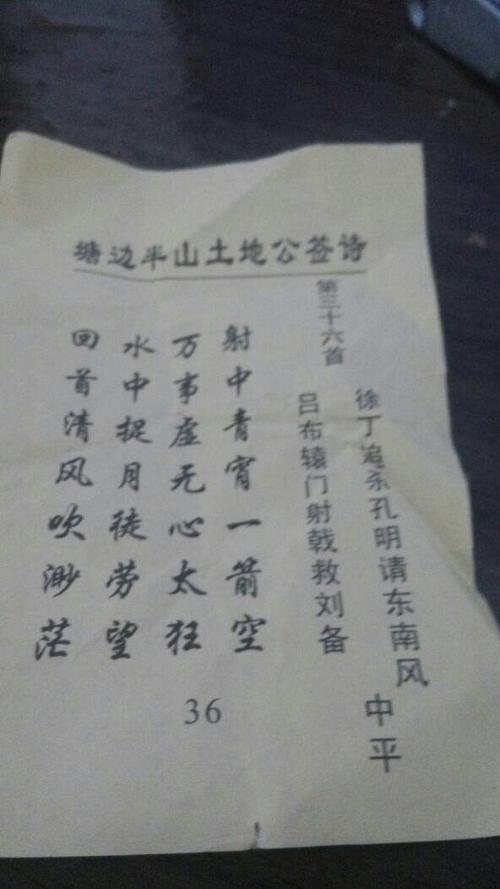 塘边半山土地公签诗
第三十六首
徐丁追杀孔明请东南风
中平
吕布辕门射戟救刘备
射中青宵一箭空
万事虚无心太狂
水中捉月徒劳望
回首清风吹渺茫
36